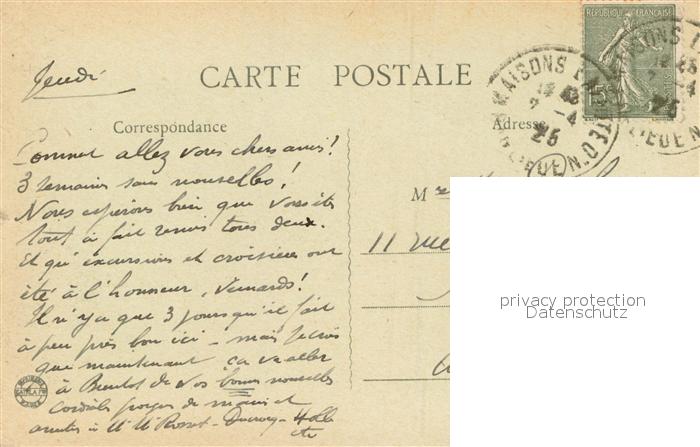 Jeudi
CARTE POSTALE
RÉPUBLIQUE FRANÇAISE
15c
MAISONS
2-4
25
Correspondance
Adresse
Comment allez vous chers amis!
3 semaines sans nouvelles!
Nous espérons bien que vous êtes
tout à fait remis tous deux.
Et qu'excursions et croisières ont
été à l'honneur, Veinards!
Il n'y a que 3 jours qu'il fait
à peu près bon ici - mais je crois
que maintenant ça va aller
à Bientôt de vos bonnes nouvelles
Cordiales de mains et
amitiés à
M
11 rue
privacy protection
Datenschutz